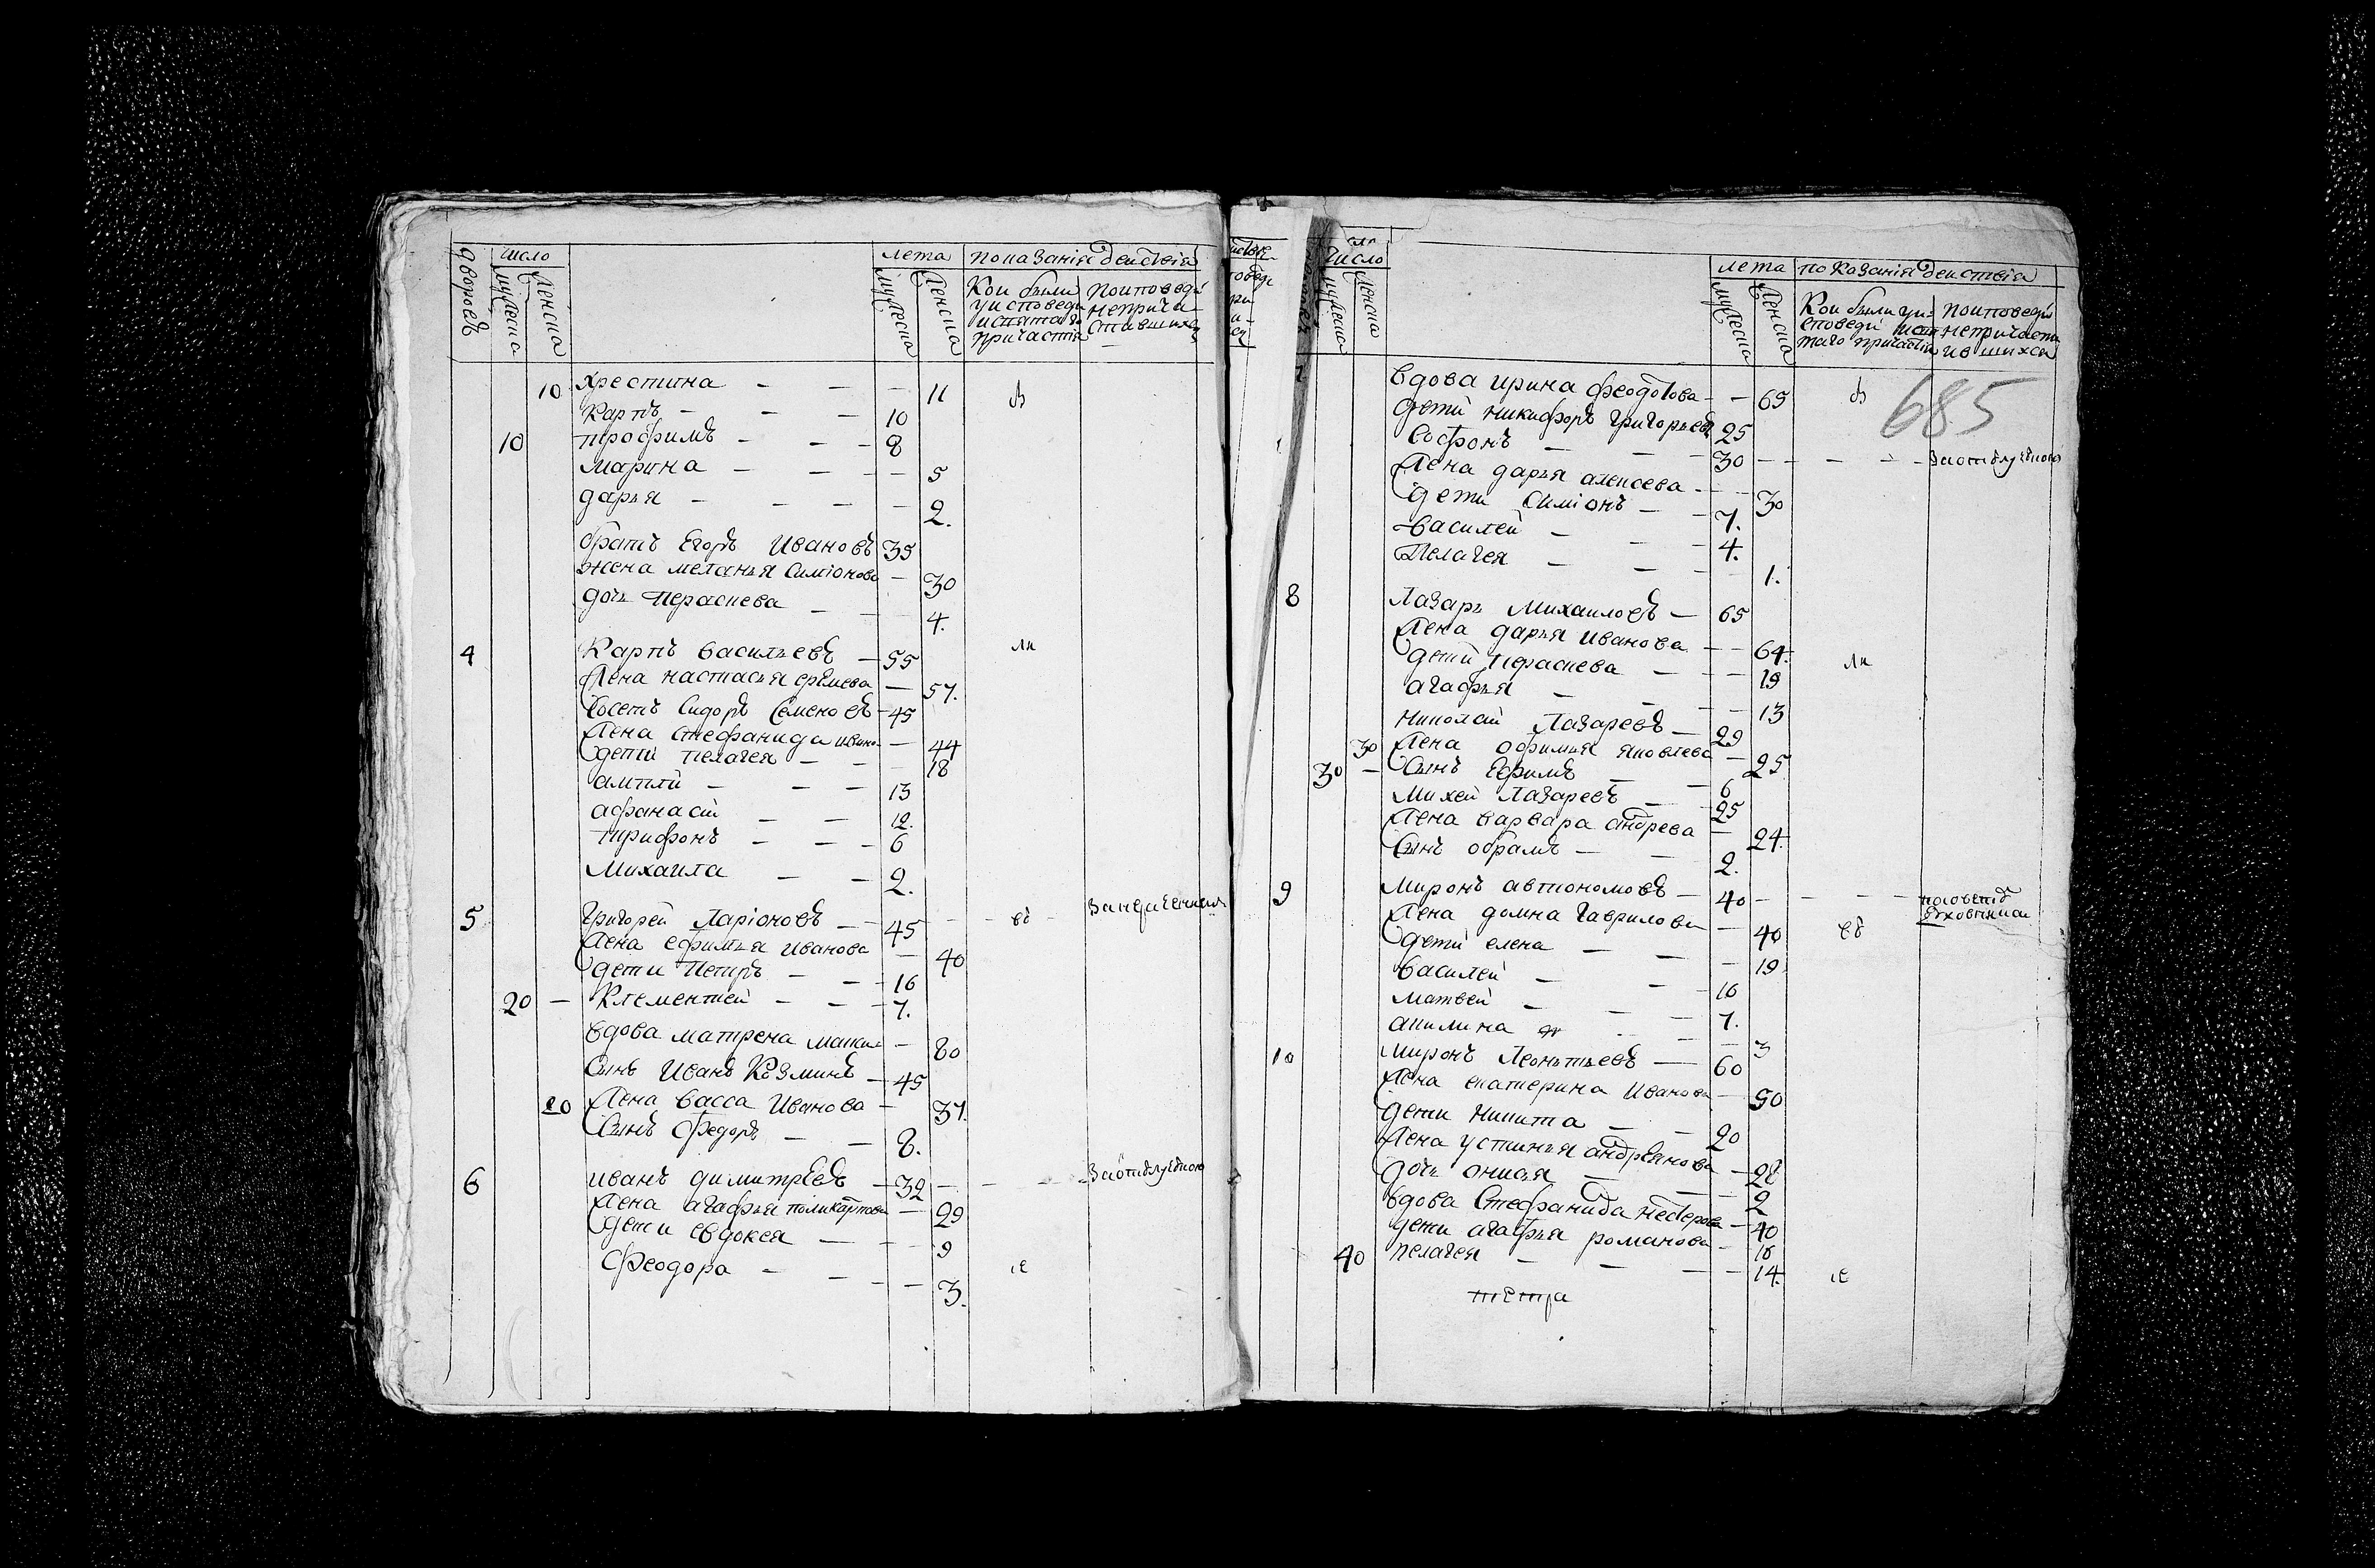 дворовъ
число
мужеска
женска
лета
мужеска
женска
показания действия
Кои были
у исповеди
и святаго
причастия
по исповеди
не прича
стившихся
10 Хрестина — — — 11
Карпъ — — — 10
10 трофимъ — — — 8
Марина — — — 5
дарья — — — 2.
братъ Егоръ Ивановъ 35
жена меланья Симионова — 30
дочь Параскева — — 4.
4 Карпъ васильевъ — 55
жена настасья еремева — 57.
Соседъ Сидоръ Семеновъ — 45
жена стефанида ивано — 44
дети пелагея — — 18
ампли — — — 13
афанасий — — 12.
трифонъ — — — 6
Михаила — — 2.
5 Григорей Ларионовъ — 45
жена ефимья Иванова — 40
дети Петръ — — 16
20 — Клементей — — 7.
вдова матрена — 80
сынъ Иванъ Козминъ — 45
20 жена васса Иванова — 37.
Сынъ Федоръ — — 8.
6 иванъ димитревъ — 32 — — —
жена агафья поликарпова — 29
дети евдокея — — 9
Феодора — — — 3.
число
мужеска
женска
лета
мужеска
женска
показания действия
Кои были у ис-
поведи и свя
таго причастия
по исповеди
не причаст
ившихся
685
вдова ирина феодотова — — 65
дети никифоръ Григорьевъ 25
Софонъ — — 30 — — —
жена дарья алексева — — 30
дети Симионъ — — 7.
василей — — — 4.
Пелагея — — — 1.
8 Лазарь Михаиловъ — 65
жена дарья иванова — — 64.
дети параскева — — 19
агафья — — — 13
николай Лазаревъ — 29
30 жена офимья яковлева — 25
30 — Сынъ Ефимъ — — 6
Михей Лазаревъ — 25
жена варвара андрева — 24.
Сынъ обрамъ — — 2.
9 Миронъ автономовъ — 40 — — —
жена домна Гаврилова — 40
дети елена — — — 19
василей — — 16
матвей — — — 7.
акилина — — 3
10 Миронъ Леонтьевъ — 60
жена екатерина Иванова — 50
дети никита — — 20
жена устинья андреянова — 28
дочь онисья — — 2
вдова Стефанида нестерова — 40
дети агафья романова — 16
40 пелагея — — — 14.